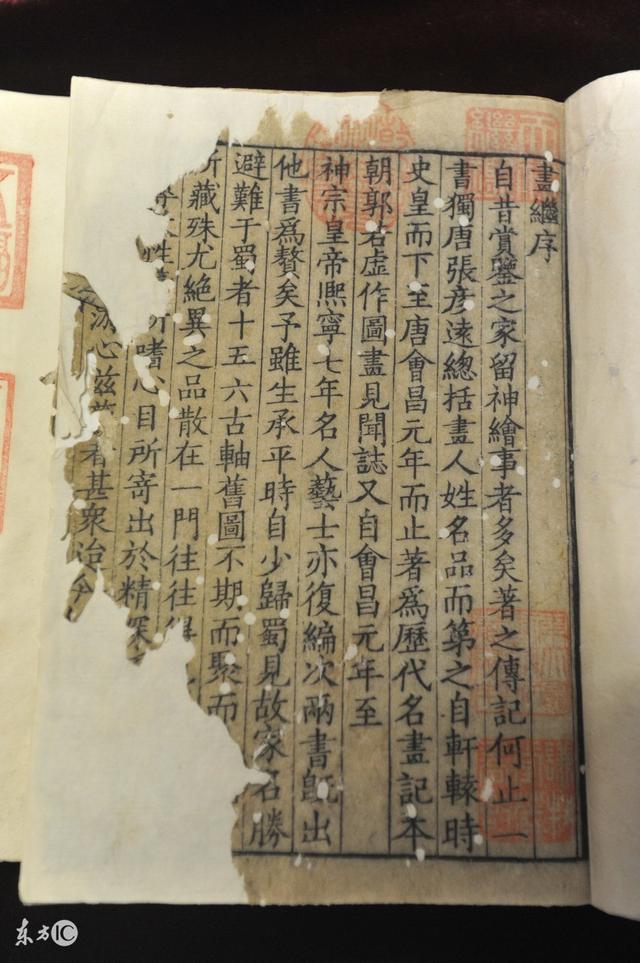 畫繼序
自昔賞鑒之家留神繪事者多矣著之傳記何止一
書獨唐張彥遠總括畫人姓名品而第之自軒轅時
史皇而下至唐會昌元年而止著爲歷代名畫記本
朝郭若虛作圖畫見聞誌又自會昌元年至
神宗皇帝熈寧七年名人藝士亦復編次兩書旣出
他書爲贅矣予雖生承平時自少歸蜀見故家名勝
避難于蜀者十五六古軸舊圖不期而聚而
所藏殊尤絶異之品散在一門往往得
嗜心目所寄出於精深
游心茲藝者甚衆迨今
东方IC